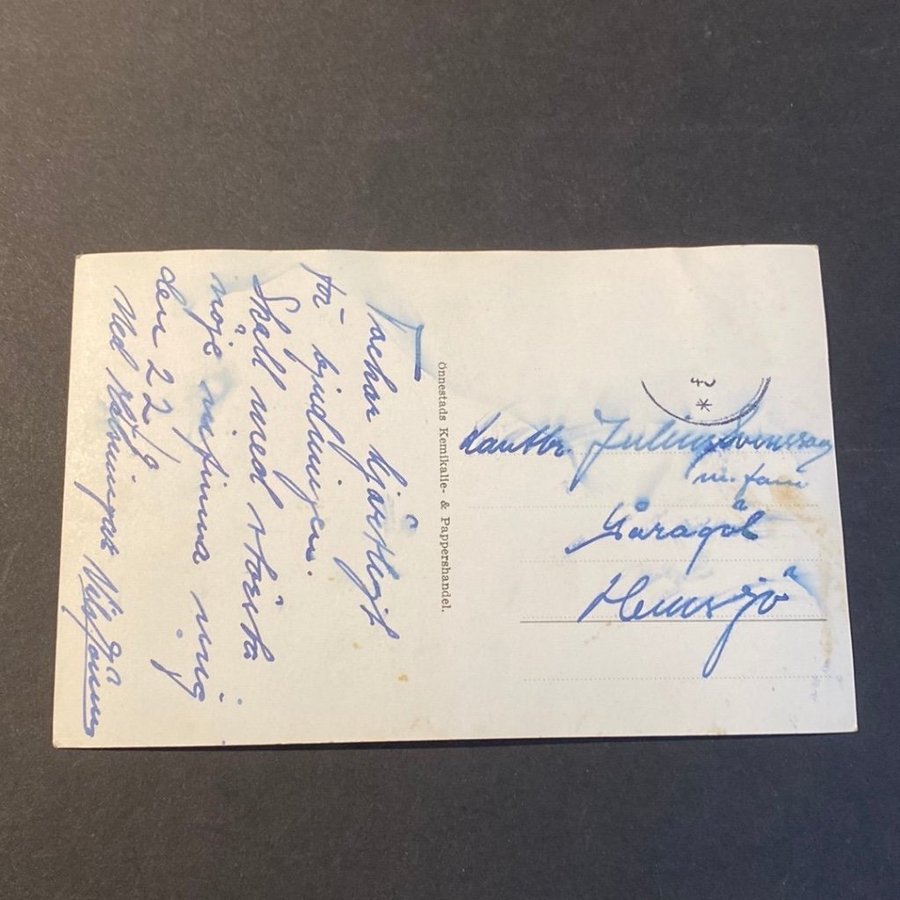 Tackar hjärtligt
för bjudningen.
Skall med största
nöje infinna mig
den 22/9
Med hälsningar
Önnestads Kemikalie- & Pappershandel.
Lantbr. Julius Svensson
m. fam
Gåragöl
Hemsjö